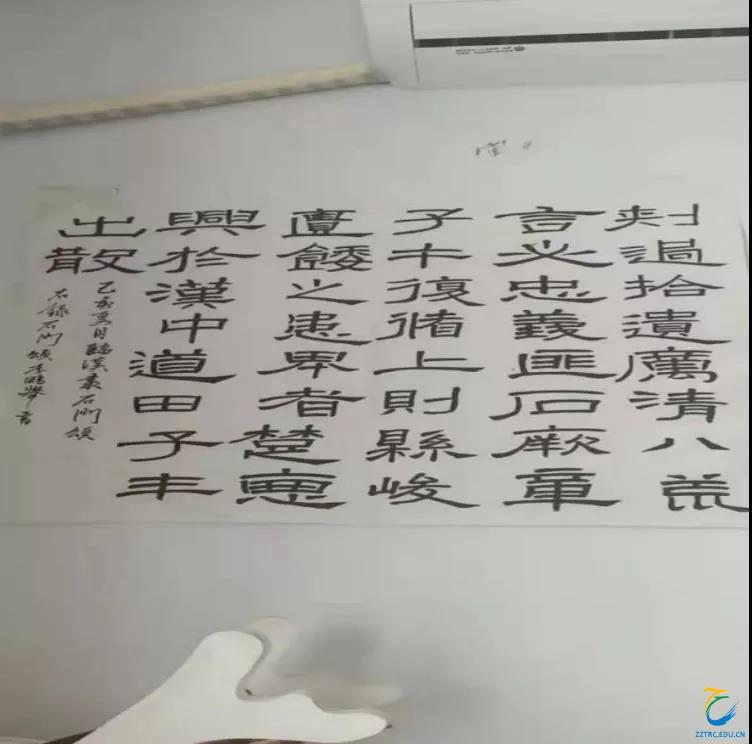 刾過拾遺厲清八荒
言必忠義匪石厥章
子午復循上則縣峻
之患卑者楚惡
興於漢中道由子午
出散
乙亥夏月臨漢隸石門頌
右錄石門頌
ZZTRC.EDU.CN